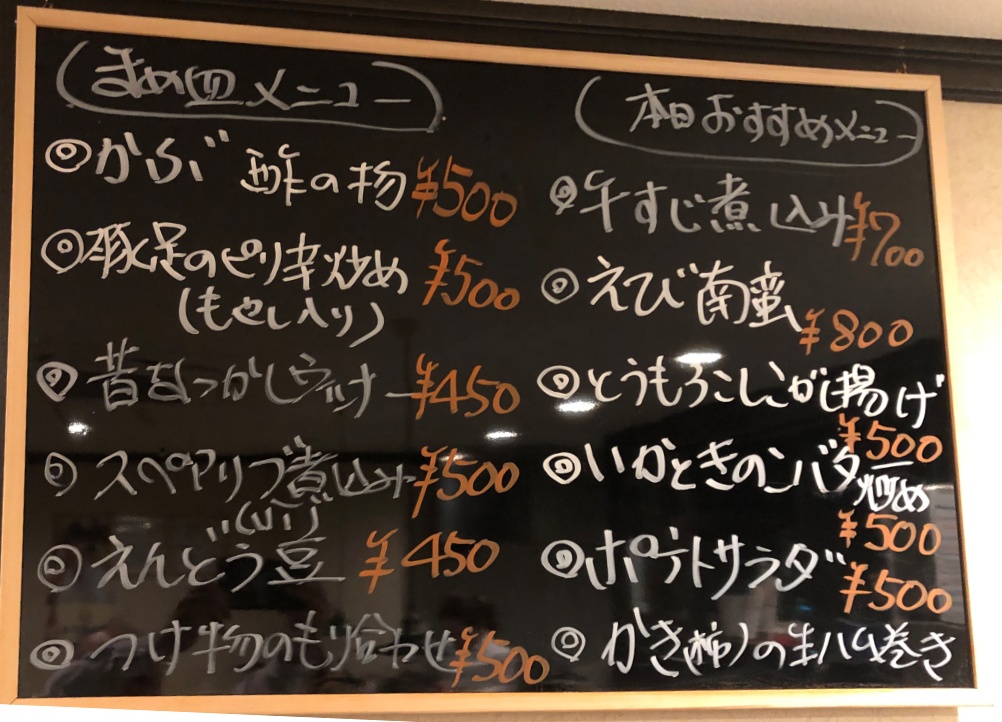 まめ皿メニュー
◎かぶ酢の物 ¥500
◎豚足のピリ辛炒め ¥500
(もやし入り)
◎昔なつかしウィンナー ¥450
◎スペアリブ煮込み ¥500
◎えんどう豆 ¥450
◎つけ物のもり合わせ ¥500
本日おすすめメニュー
◎牛すじ煮込み ¥700
◎えび南蛮
¥800
◎とうもろこしこがし揚げ
¥500
◎いかときのこバター炒め
¥500
◎ポテトサラダ ¥500
◎かき(柿)の生ハム巻き